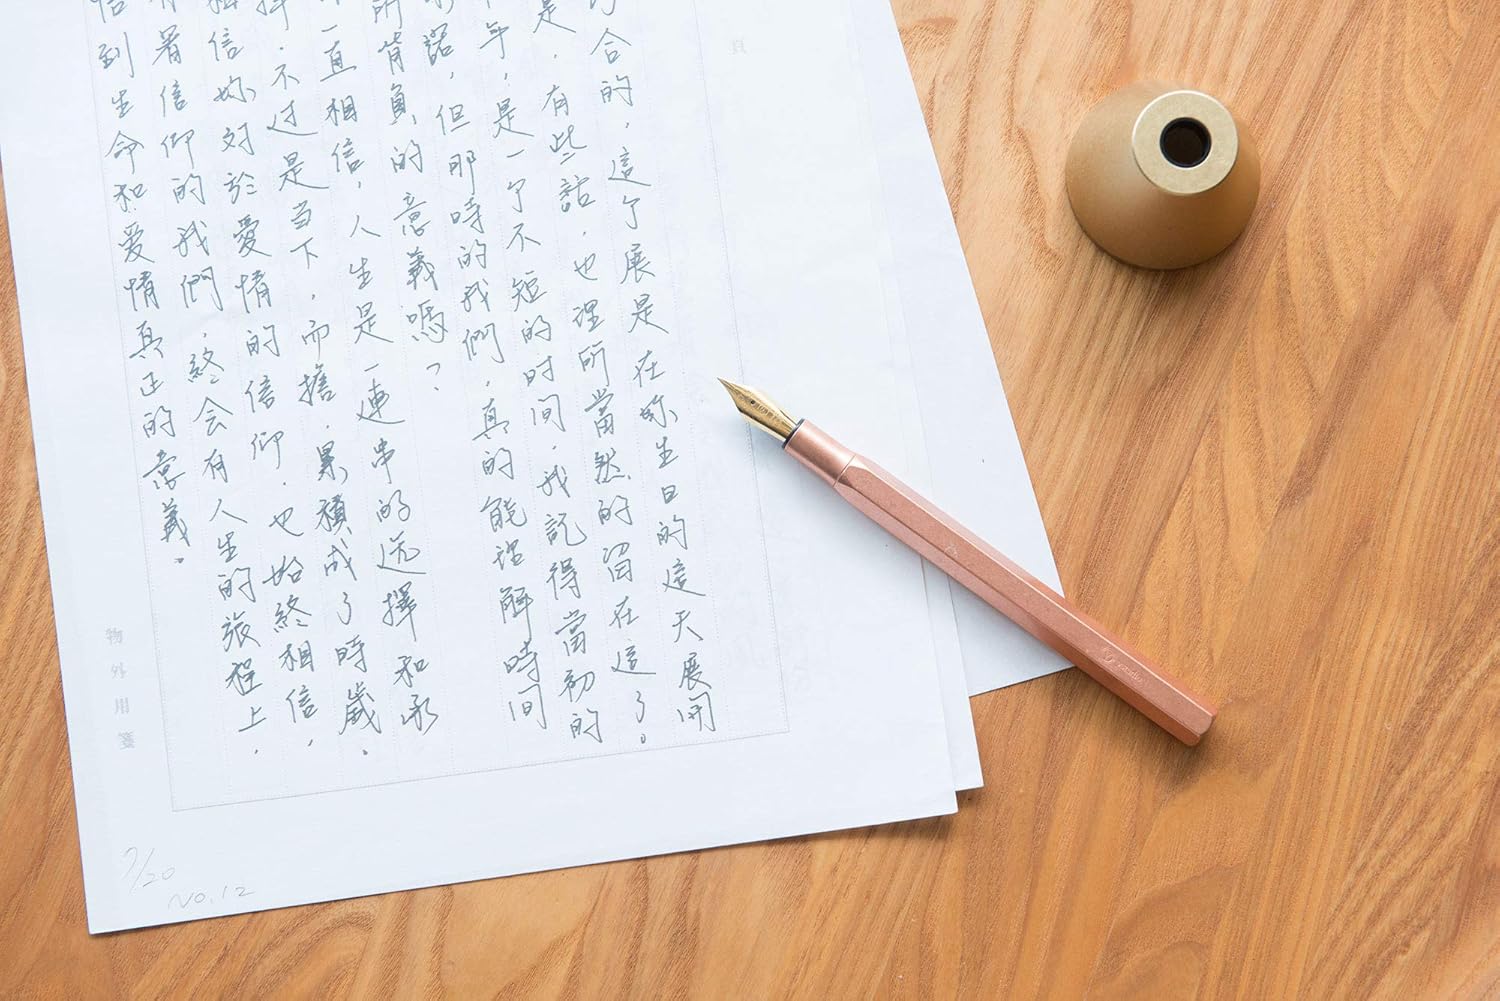 合的，這个展是在妳生日的這天展開
是，有些話，也理所當然的留在這了。
年，是一个不短的时间，我記得當初的
諾，但那時的我們，真的能理解時間
所背負的意義嗎？
一直相信，人生是一連串的选擇和承
擇，不过是当下，而擔，累積成了時歲，
信妳对於愛情的信仰，也始終相信，
有着信仰的我們，終会有人生的旅程上，
悟到生命和爱情真正的意義。
物外用箋
7/20
NO.12